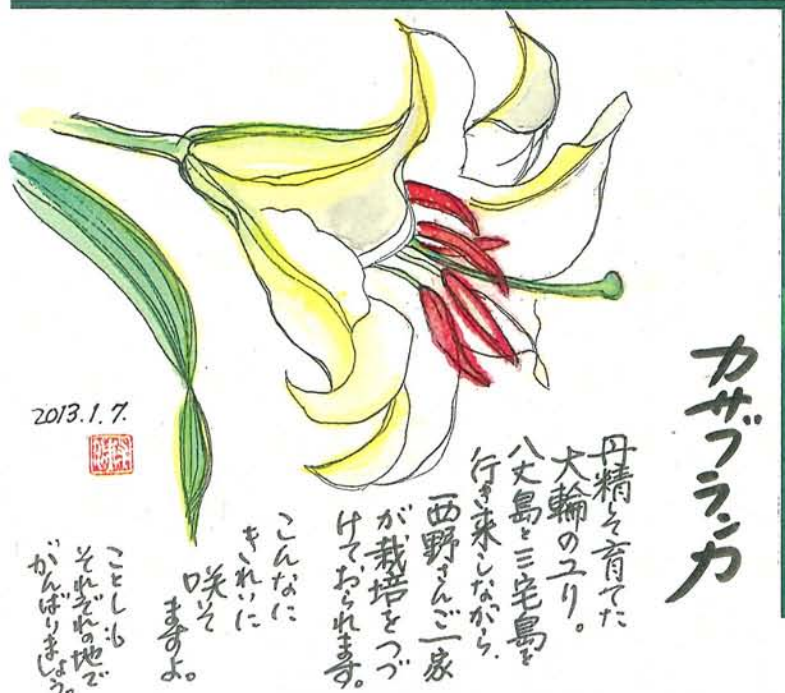 カサブランカ
丹精こめて育てた
大輪のユリ。
八丈島と三宅島を
行き来しながら、
西野さんご一家
が栽培をつづ
けておられます。
こんなに
きれいに
咲いて
ますよ。
ことしも
それぞれの地で
がんばりましょう。
2013.1.7.